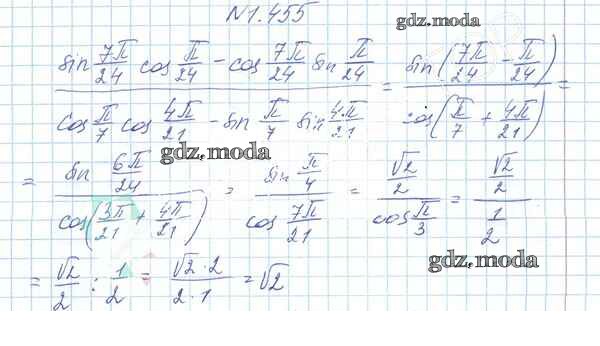 N1.455
gdz.moda
(sin 7π/24 cos π/24 - cos 7π/24 sin π/24) / (cos π/7 cos 4π/21 - sin π/7 sin 4π/21) = sin(7π/24 - π/24) / cos(π/7 + 4π/21) =
gdz.moda
= sin 6π/24 / cos(3π/21 + 4π/21) = sin π/4 / cos 7π/21 = √2/2 / cos π/3 = √2/2 / 1/2
gdz.moda
= √2/2 : 1/2 = √2·2 / 2·1 = √2